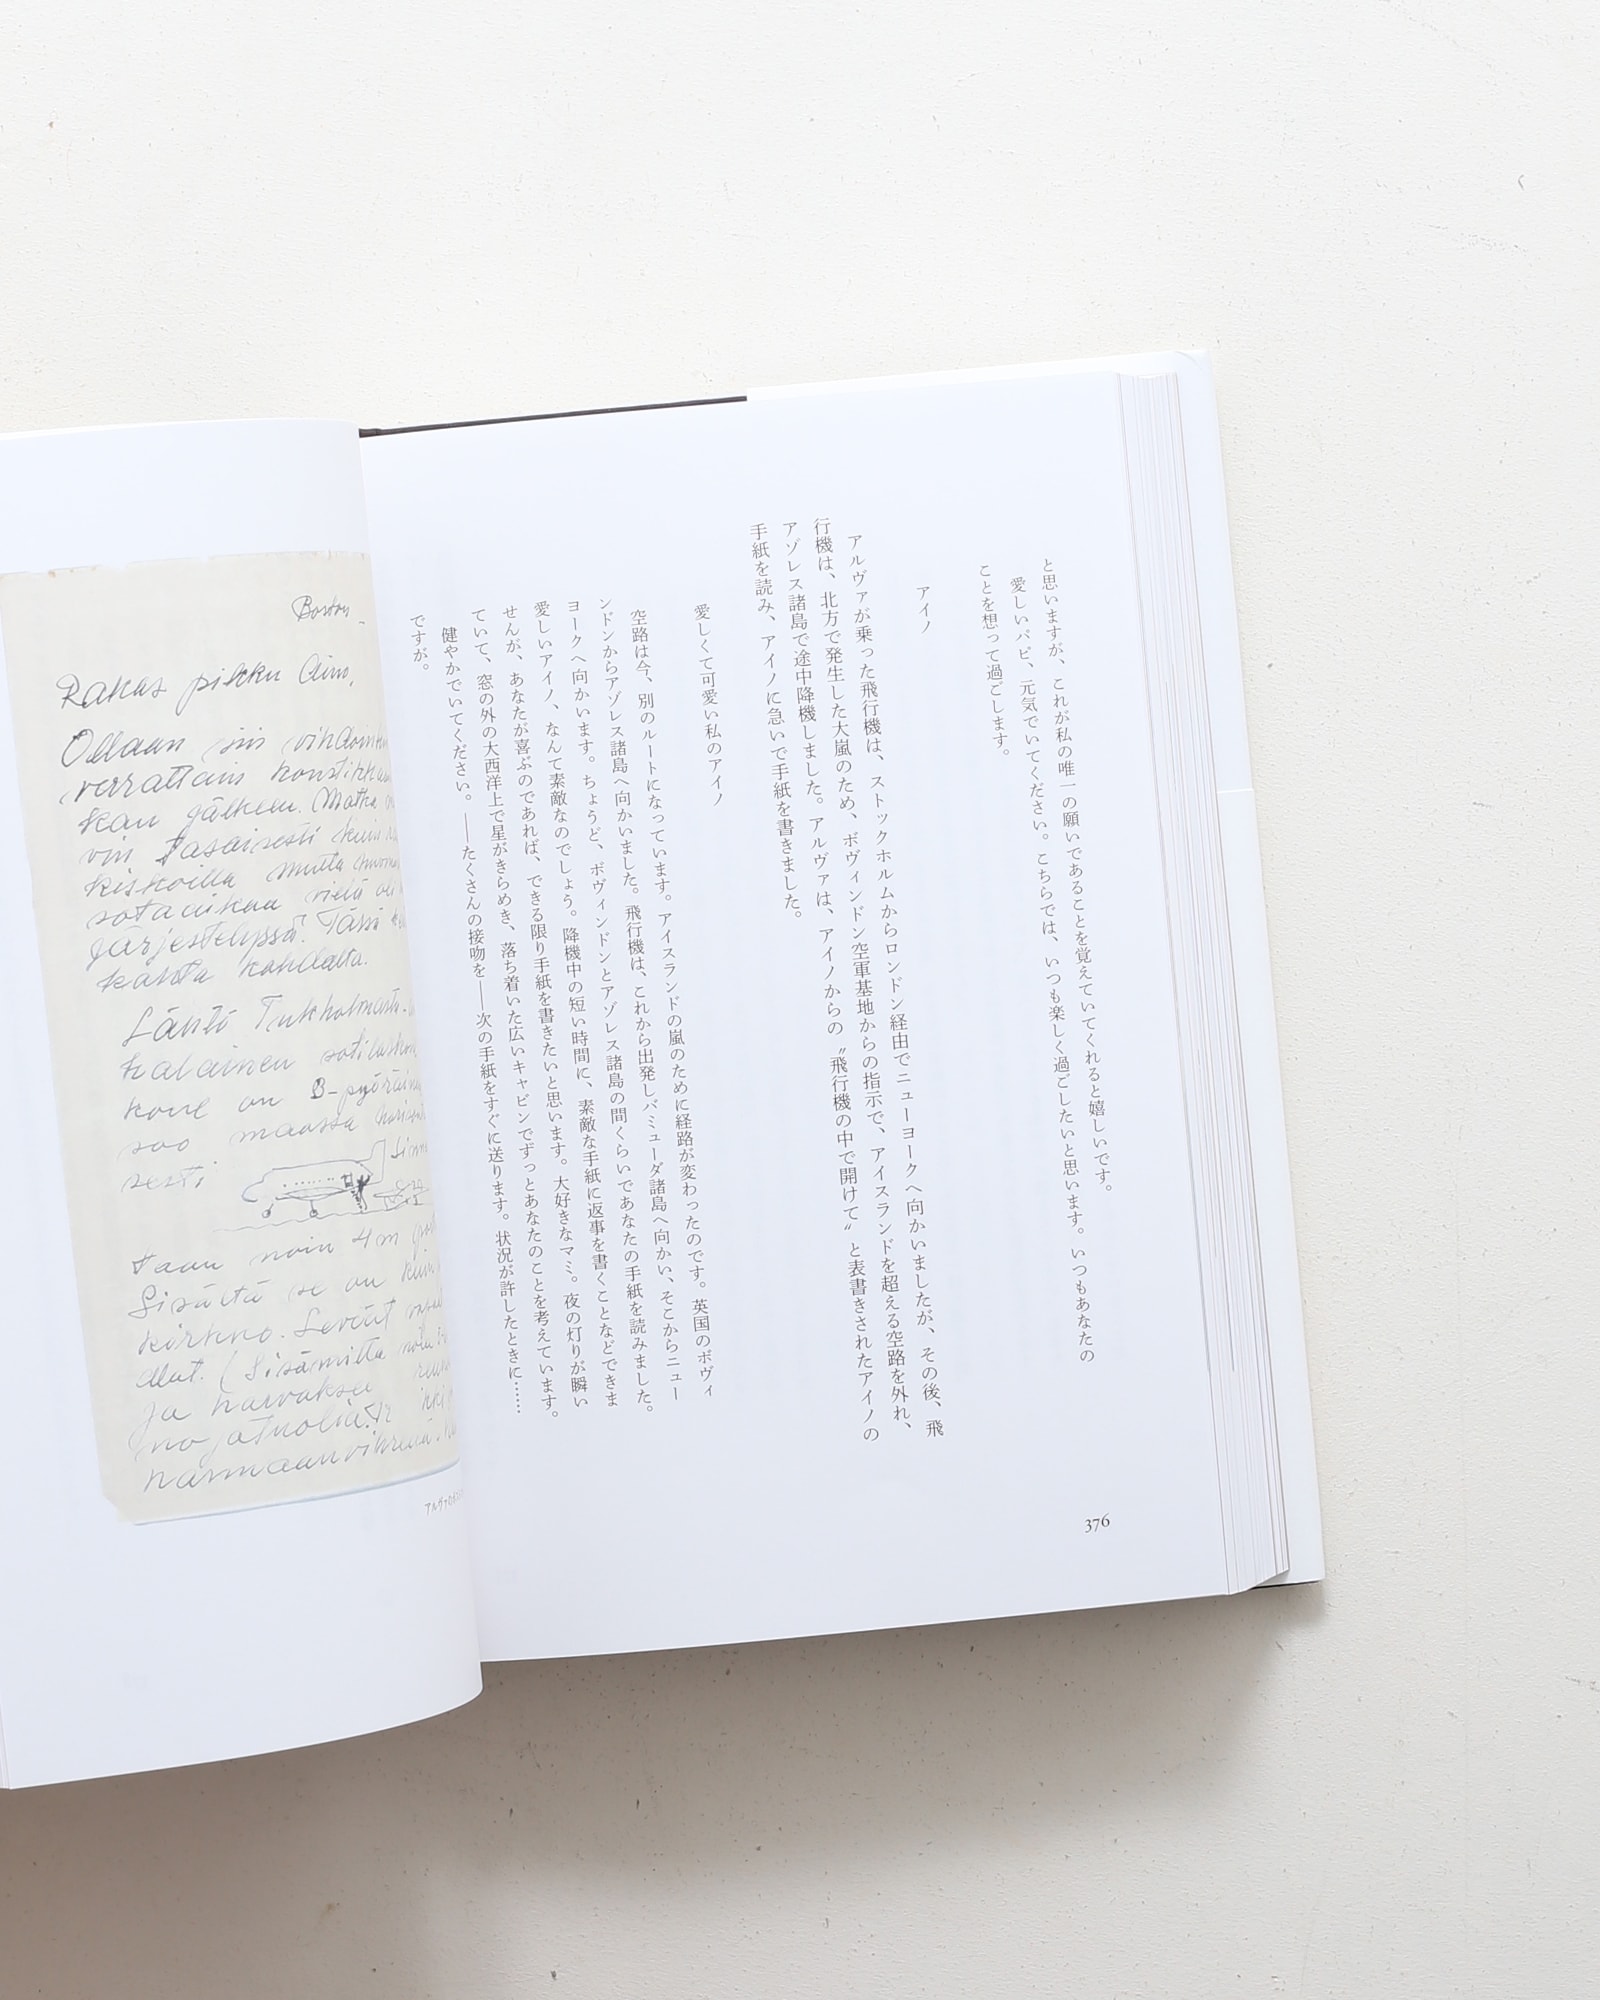 と思いますが、これが私の唯一の願いであることを覚えていてくれると嬉しいです。
愛しいパピ、元気でいてください。こちらでは、いつも楽しく過ごしたいと思います。いつもあなたの
ことを想って過ごします。
アイノ
アルヴァが乗った飛行機は、ストックホルムからロンドン経由でニューヨークへ向かいましたが、その後、飛
行機は、北方で発生した大嵐のため、ボヴィンドン空軍基地からの指示で、アイスランドを超える空路を外れ、
アゾレス諸島で途中降機しました。アルヴァは、アイノからの〝飛行機の中で開けて〟と表書きされたアイノの
手紙を読み、アイノに急いで手紙を書きました。
愛しくて可愛い私のアイノ
空路は今、別のルートになっています。アイスランドの嵐のために経路が変わったのです。英国のボヴィ
ンドンからアゾレス諸島へ向かいました。飛行機は、これから出発しバミューダ諸島へ向かい、そこからニュー
ヨークへ向かいます。ちょうど、ボヴィンドンとアゾレス諸島の間くらいであなたの手紙を読みました。
愛しいアイノ、なんて素敵なのでしょう。降機中の短い時間に、素敵な手紙に返事を書くことなどできま
せんが、あなたが喜ぶのであれば、できる限り手紙を書きたいと思います。大好きなマミ。夜の灯りが瞬い
ていて、窓の外の大西洋上で星がきらめき、落ち着いた広いキャビンでずっとあなたのことを考えています。
健やかでいてください。――たくさんの接吻を――次の手紙をすぐに送ります。状況が許したときに……
ですが。
376
Boston
Rakas pikku Aino,
Ollaan siis
verrattain
kan jälkeen. Matka
vin tasaisesti kuin
kiskoilla mutta
sotaaikaa vielä
järjestelyssä. Tässä
kanta kohdalta.
Lähtö
kalainen
kone on 3-pyöräin
soo maassa
sesti
taan noin 4 m
Sisältä se on kuin
kirkko. Leveät
(Sisämitta noin
ja harvaksee
nojatuolia.
アルヴァの